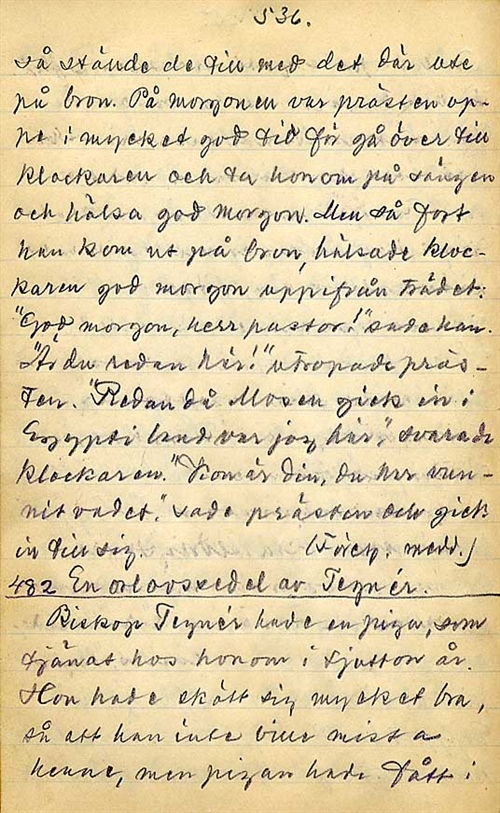 536.
så stände de till med det där ute
på bron. På morgonen var prästen up-
pe i mycket god tid för gå över till
klockaren och ta honom på sängen
och hälsa god morgon. Men så fort
han kom ut på bron, hälsade kloc-
karen god morgon uppifrån trädet:
"God morgon, herr pastor!" sade han.
"Är du redan här!" utropade präs-
ten. "Redan då Mosen gick in i
Egypti land var jag här," svarade
klockaren. "Kon är din, du har vun-
nit vadet." sade prästen och gick
in till sig. (Föreg. medd.)
482 En orlovssedel av Tegnér.
Biskop Tegnér hade en piga, som
tjänat hos honom i sjutton år.
Hon hade skött sig mycket bra,
så att han inte ville mista
henne, men pigan hade fått i